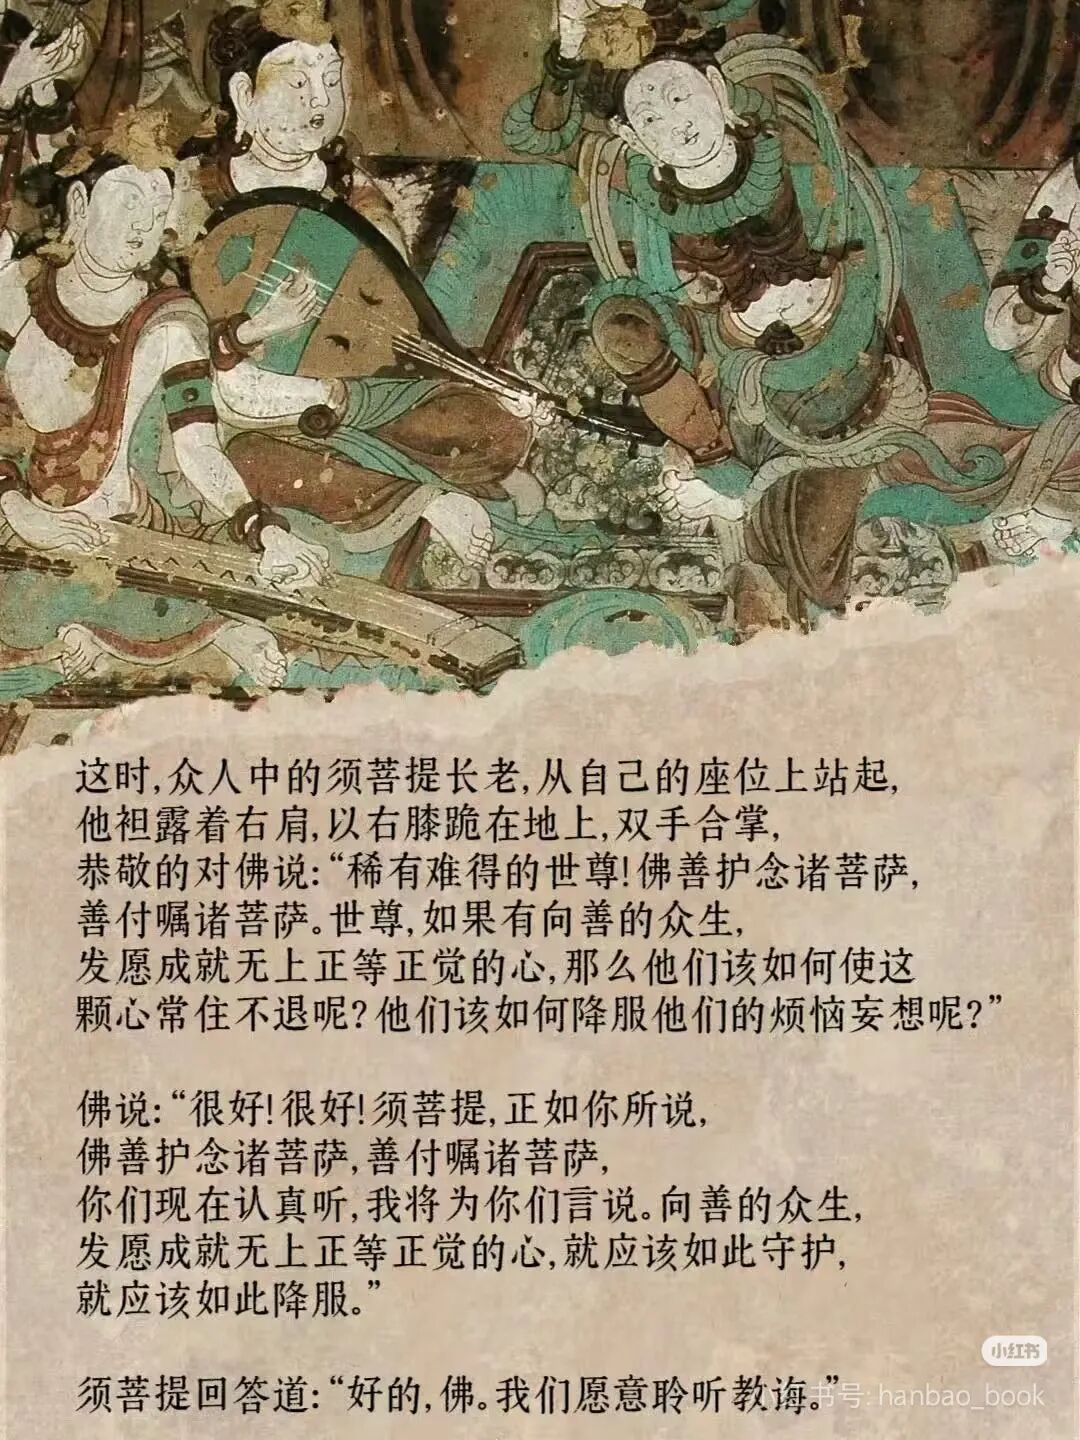 这时,众人中的须菩提长老,从自己的座位上站起,
他袒露着右肩,以右膝跪在地上,双手合掌,
恭敬的对佛说:“稀有难得的世尊!佛善护念诸菩萨,
善付嘱诸菩萨。世尊,如果有向善的众生,
发愿成就无上正等正觉的心,那么他们该如何使这
颗心常住不退呢?他们该如何降服他们的烦恼妄想呢?”
佛说:“很好!很好!须菩提,正如你所说,
佛善护念诸菩萨,善付嘱诸菩萨,
你们现在认真听,我将为你们言说。向善的众生,
发愿成就无上正等正觉的心,就应该如此守护,
就应该如此降服。”
小红书
须菩提回答道:“好的,佛。我们愿意聆听教诲。”
小红书号:hanbao_book